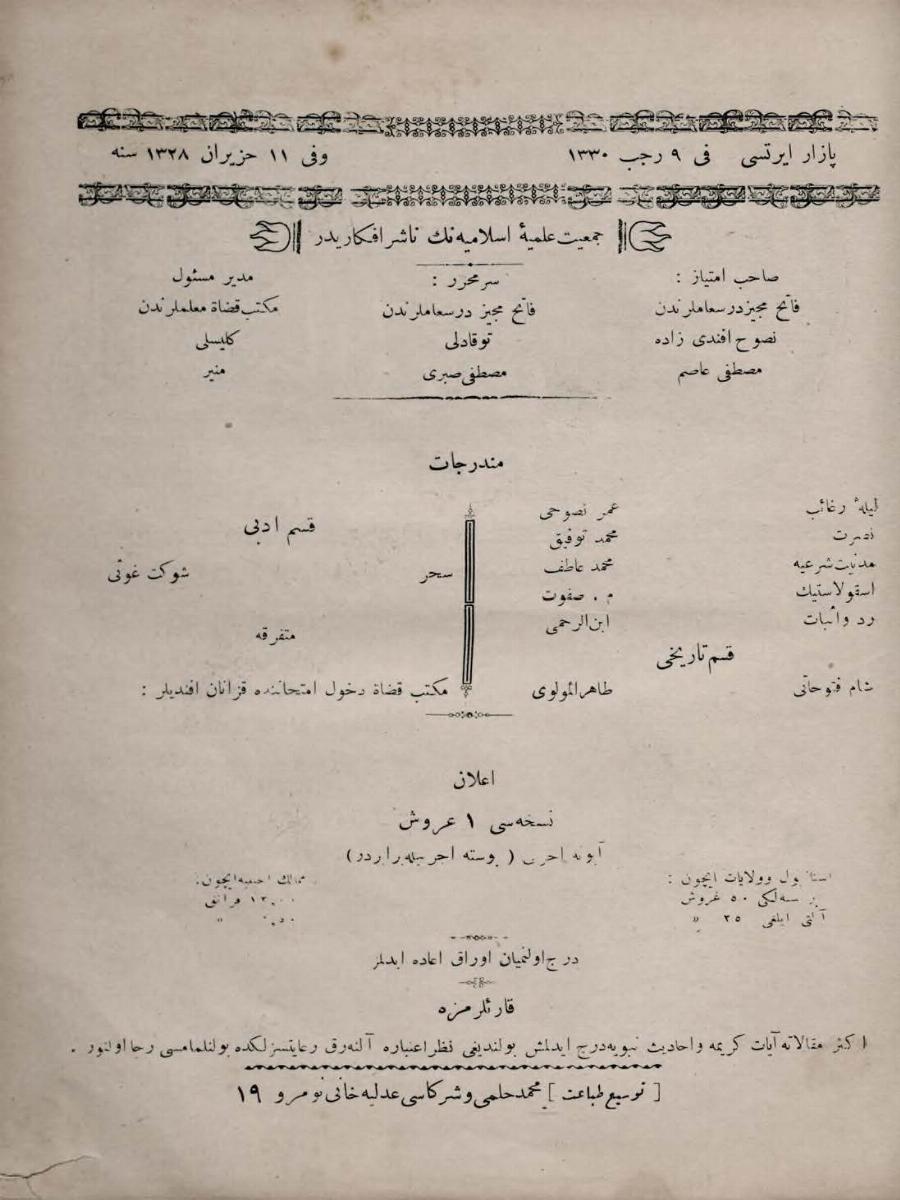 پازار ایرتسی فی ۹ رجب ۱۳۳۰ وفی ۱۱ حزیران ۱۳۲۸ سنه
جمعیت علمیهٔ اسلامیه‌نك ناشر افکاریدر
صاحب امتیاز :
فاتح مجیز درسعاملرندن
نصوح افندی زاده
مصطفی عاصم
سرمحرر :
فاتح مجیز درسعاملرندن
توقادلی
مصطفی صبری
مدیر مسئول
مکتب قضاة معلملرندن
کلیسلی
منیر
مندرجات
لیلهٔ رغائب عمر نصوحی
نصرت محمد توفیق
مدنیت شرعیه محمد عاطف
اسقولاستیك م . صفوت
رد واثبات ابن‌الرحمی
قسم تاریخی
شام فتوحاتی طاهر المولوی
قسم ادبی
سحر شوکت غوثی
متفرقه
مکتب قضاة دخول امتحاننده قزانان افندیلر :
اعلان
نسخه‌سی ۱ غروش
آبونه اجرتی ( پوسته اجرتیله برابردر )
استانبول وولایات ایچون :
بر سنه‌لکی ۵۰ غروش
آلتی ایلغی ۲۵ »
ممالك اجنبیه ایچون :
فرانق
»
درج اولنمیان اوراق اعاده ایدلمز
قارئلرمزه
اکثر مقالاته آیات کریمه واحادیث نبویه درج ایدلمش بولندیغی نظر اعتباره آلنه‌رق رعایتسزلکده بولنلمامسی رجا اولنور .
[ توسیع طباعت ] محمد حلمی وشرکاسی عدلیه خانی نومرو ۱۹